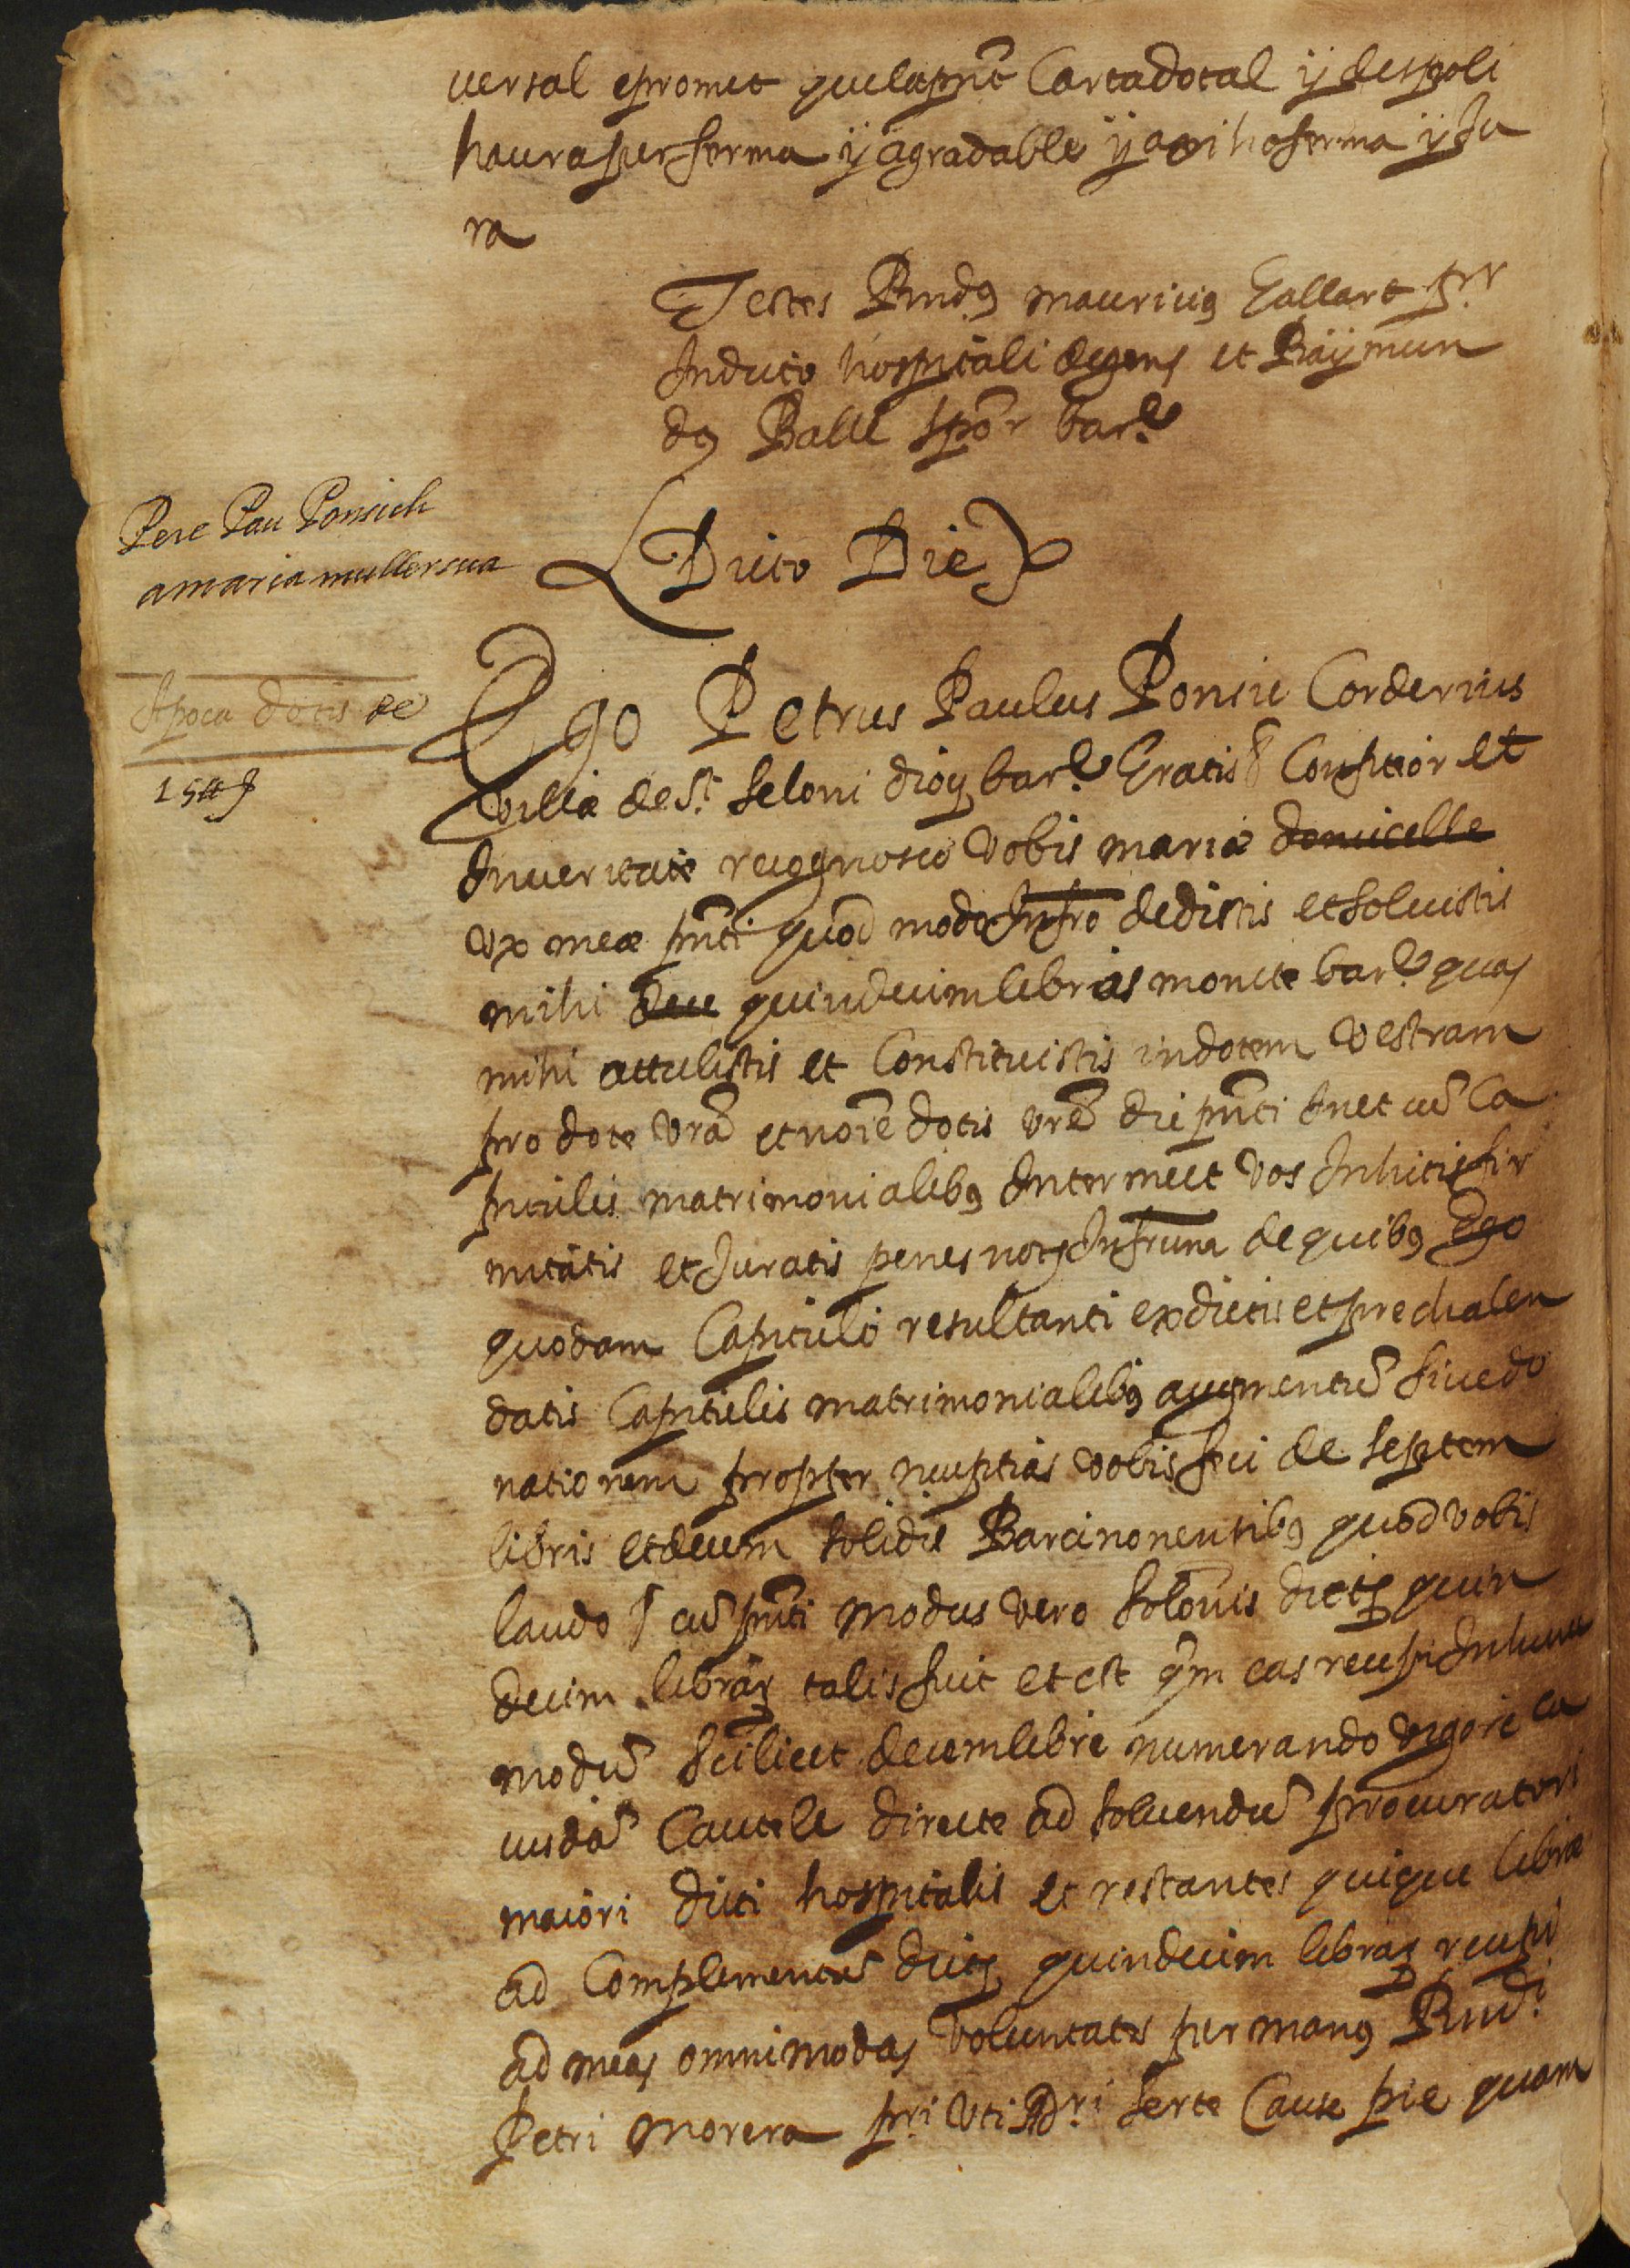 uersal epromet quelaprñt Cartadotal ÿ despoli
hauraperferma ÿ agradable ÿ axi hoferma ÿ Ju
ra
Testes Rndꝯ mauriuꝯ Gallart prr
Indicto hospitali degens et Raÿmun
dꝯ Balle spõr barᵉ
Pere Pau Ponsich
a maria muller sua
Dicto Die
Apoca dotis de
15 ₶
Ego Petrus Paulus Ponsic Corderius
Villæ de St. Seloni dioꝯ barᵉ Gratis & Confiteor et
Inueritate recognosco Vobis mariæ domicelle
Vx meæ pñti quod modo Infro dedistis et soluistis
mihi dece quindecim libras monete barᵉ quas
mihi attulistis et Constituistis indotem Vestram
pro dote vrã et noïe dotis vrẽ die pñti Inet cũ Ca
pitulis matrimonialibꝯ Inter me et Vos Inhitis fir
mitatis et Juratis penes notꝯ Infrum de quibꝯ Ego
quodam Capitulo resultanti ex dictis et prechalen
datis Capitulis matrimonialibꝯ augmentũ siue do
nationem propter nuptias vobis feci de septem
libris et decem solidis Barcinonensibꝯ quod vobis
laudo & cũ pñti Modus vero solonis dictꝝ quin
decim librarꝝ talis fuit et est qm eas recepi Inhunc
modũ scilicet decem libre numerando vigore cu
iusdã Cautele directe ad soluendũ procuratori
maiori dicti hospitalis et restantes quique libræ
ad Complementũ dictꝝ quindecim librarꝝ recepi
ad meas omnimodas voluntates per manꝯ Rndi
Petri Morera pri Vti Adri Certe Cause pie quam